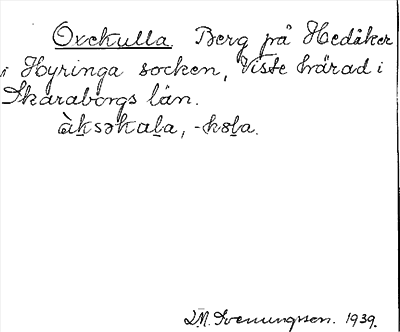 Oxekulla. Berg på Hedåker
i Hyringa socken, Viste härad i
Skaraborgs län.
àksəkala, -kɷla.
Svenungsson. 1939.